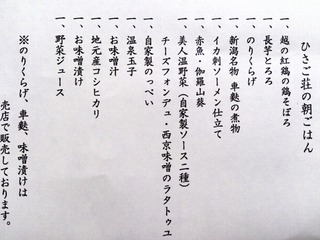 ひさご荘の朝ごはん
一、越の紅鶏の鶏そぼろ
一、長芋とろろ
一、のりくらげ
一、新潟名物 車麩の煮物
一、イカ刺ソーメン仕立て
一、赤魚・伽羅山葵
一、美人温野菜(自家製ソース二種)
チーズフォンデュ・西京味噌のラタトゥユ
一、自家製のっぺい
一、温泉玉子
一、お味噌汁
一、地元産コシヒカリ
一、お味噌漬け
一、野菜ジュース
※のりくらげ、車麩、味噌漬けは
売店で販売しております。